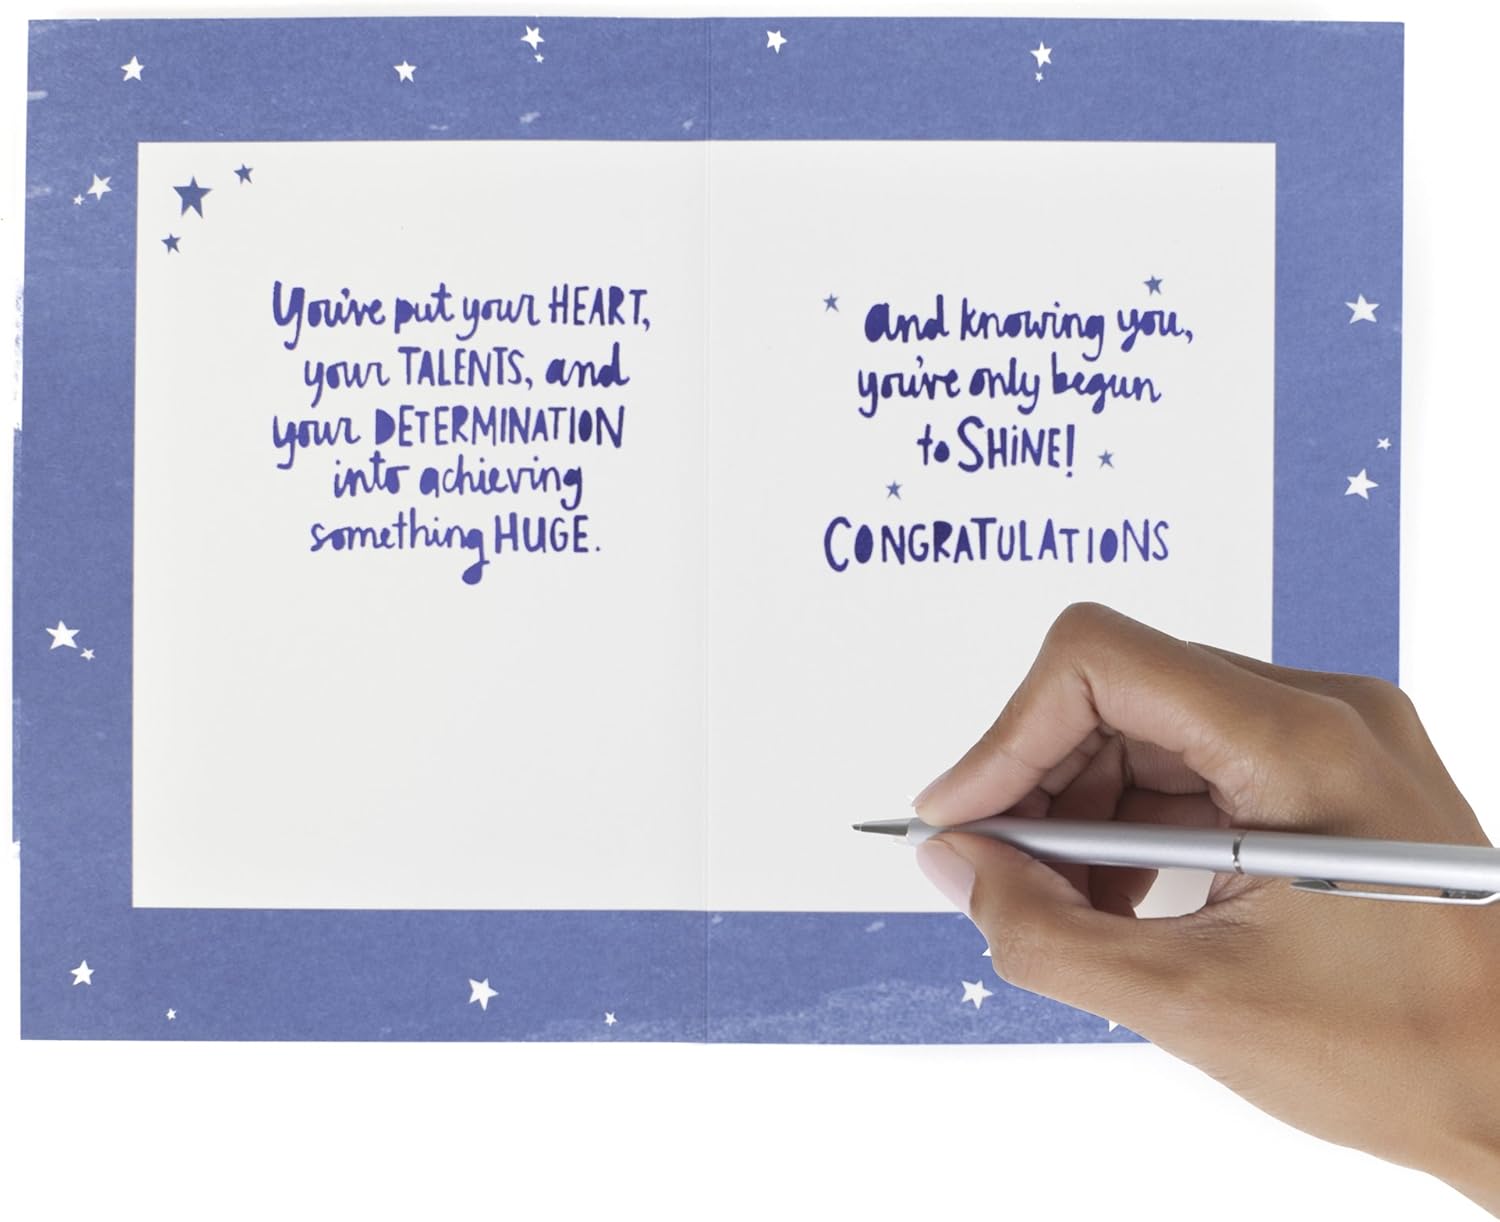 You've put your HEART,
your TALENTS, and
your DETERMINATION
into achieving
something HUGE.
and knowing you,
you've only begun
to SHiNE!
CONGRATULATIONS